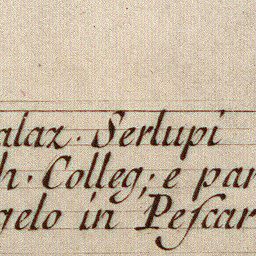 alaz. Serlupi
h. Colleg; e par
gelo in Peſcar